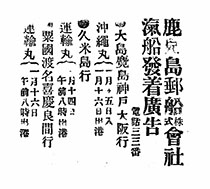 鹿児島郵船株式會社
滊船發着廣告
電話三三番
大島鹿島神戸大阪行
沖繩丸 月 五日入出港
久米島行
運輸丸 一月十四 午前八時出港
粟國渡名喜慶良間行
運輸丸 一月十六日 午前八時出港